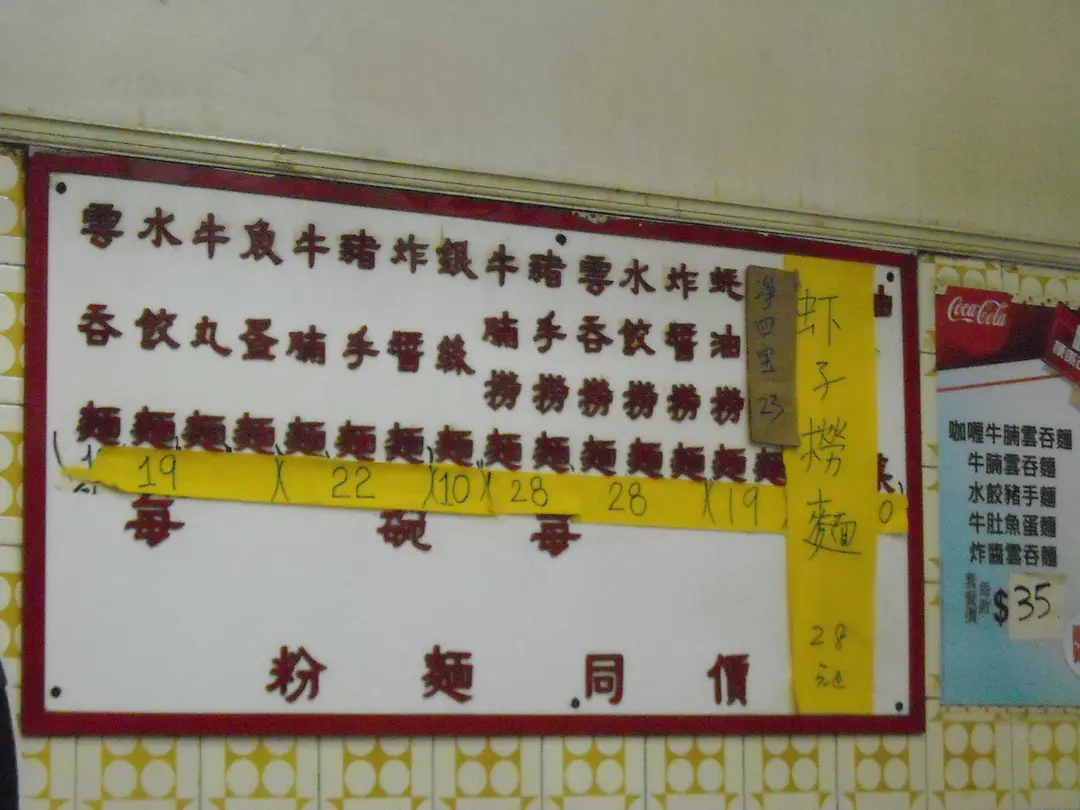 雲吞麵
水餃麵
牛丸麵
魚蛋麵
牛腩麵
豬手麵
炸醬麵
銀絲麵
牛腩撈麵
豬手撈麵
雲吞撈麵
水餃撈麵
炸醬撈麵
蚝油撈麵
麵
淨四宝 23
虾子撈麵 28元
油
菜
19
22
10
28
28
19
0
每
碗
每
粉麵同價
Coca-Cola
咖喱牛腩雲吞麵
牛腩雲吞麵
水餃豬手麵
牛肚魚蛋麵
炸醬雲吞麵
套餐價
每款
$35